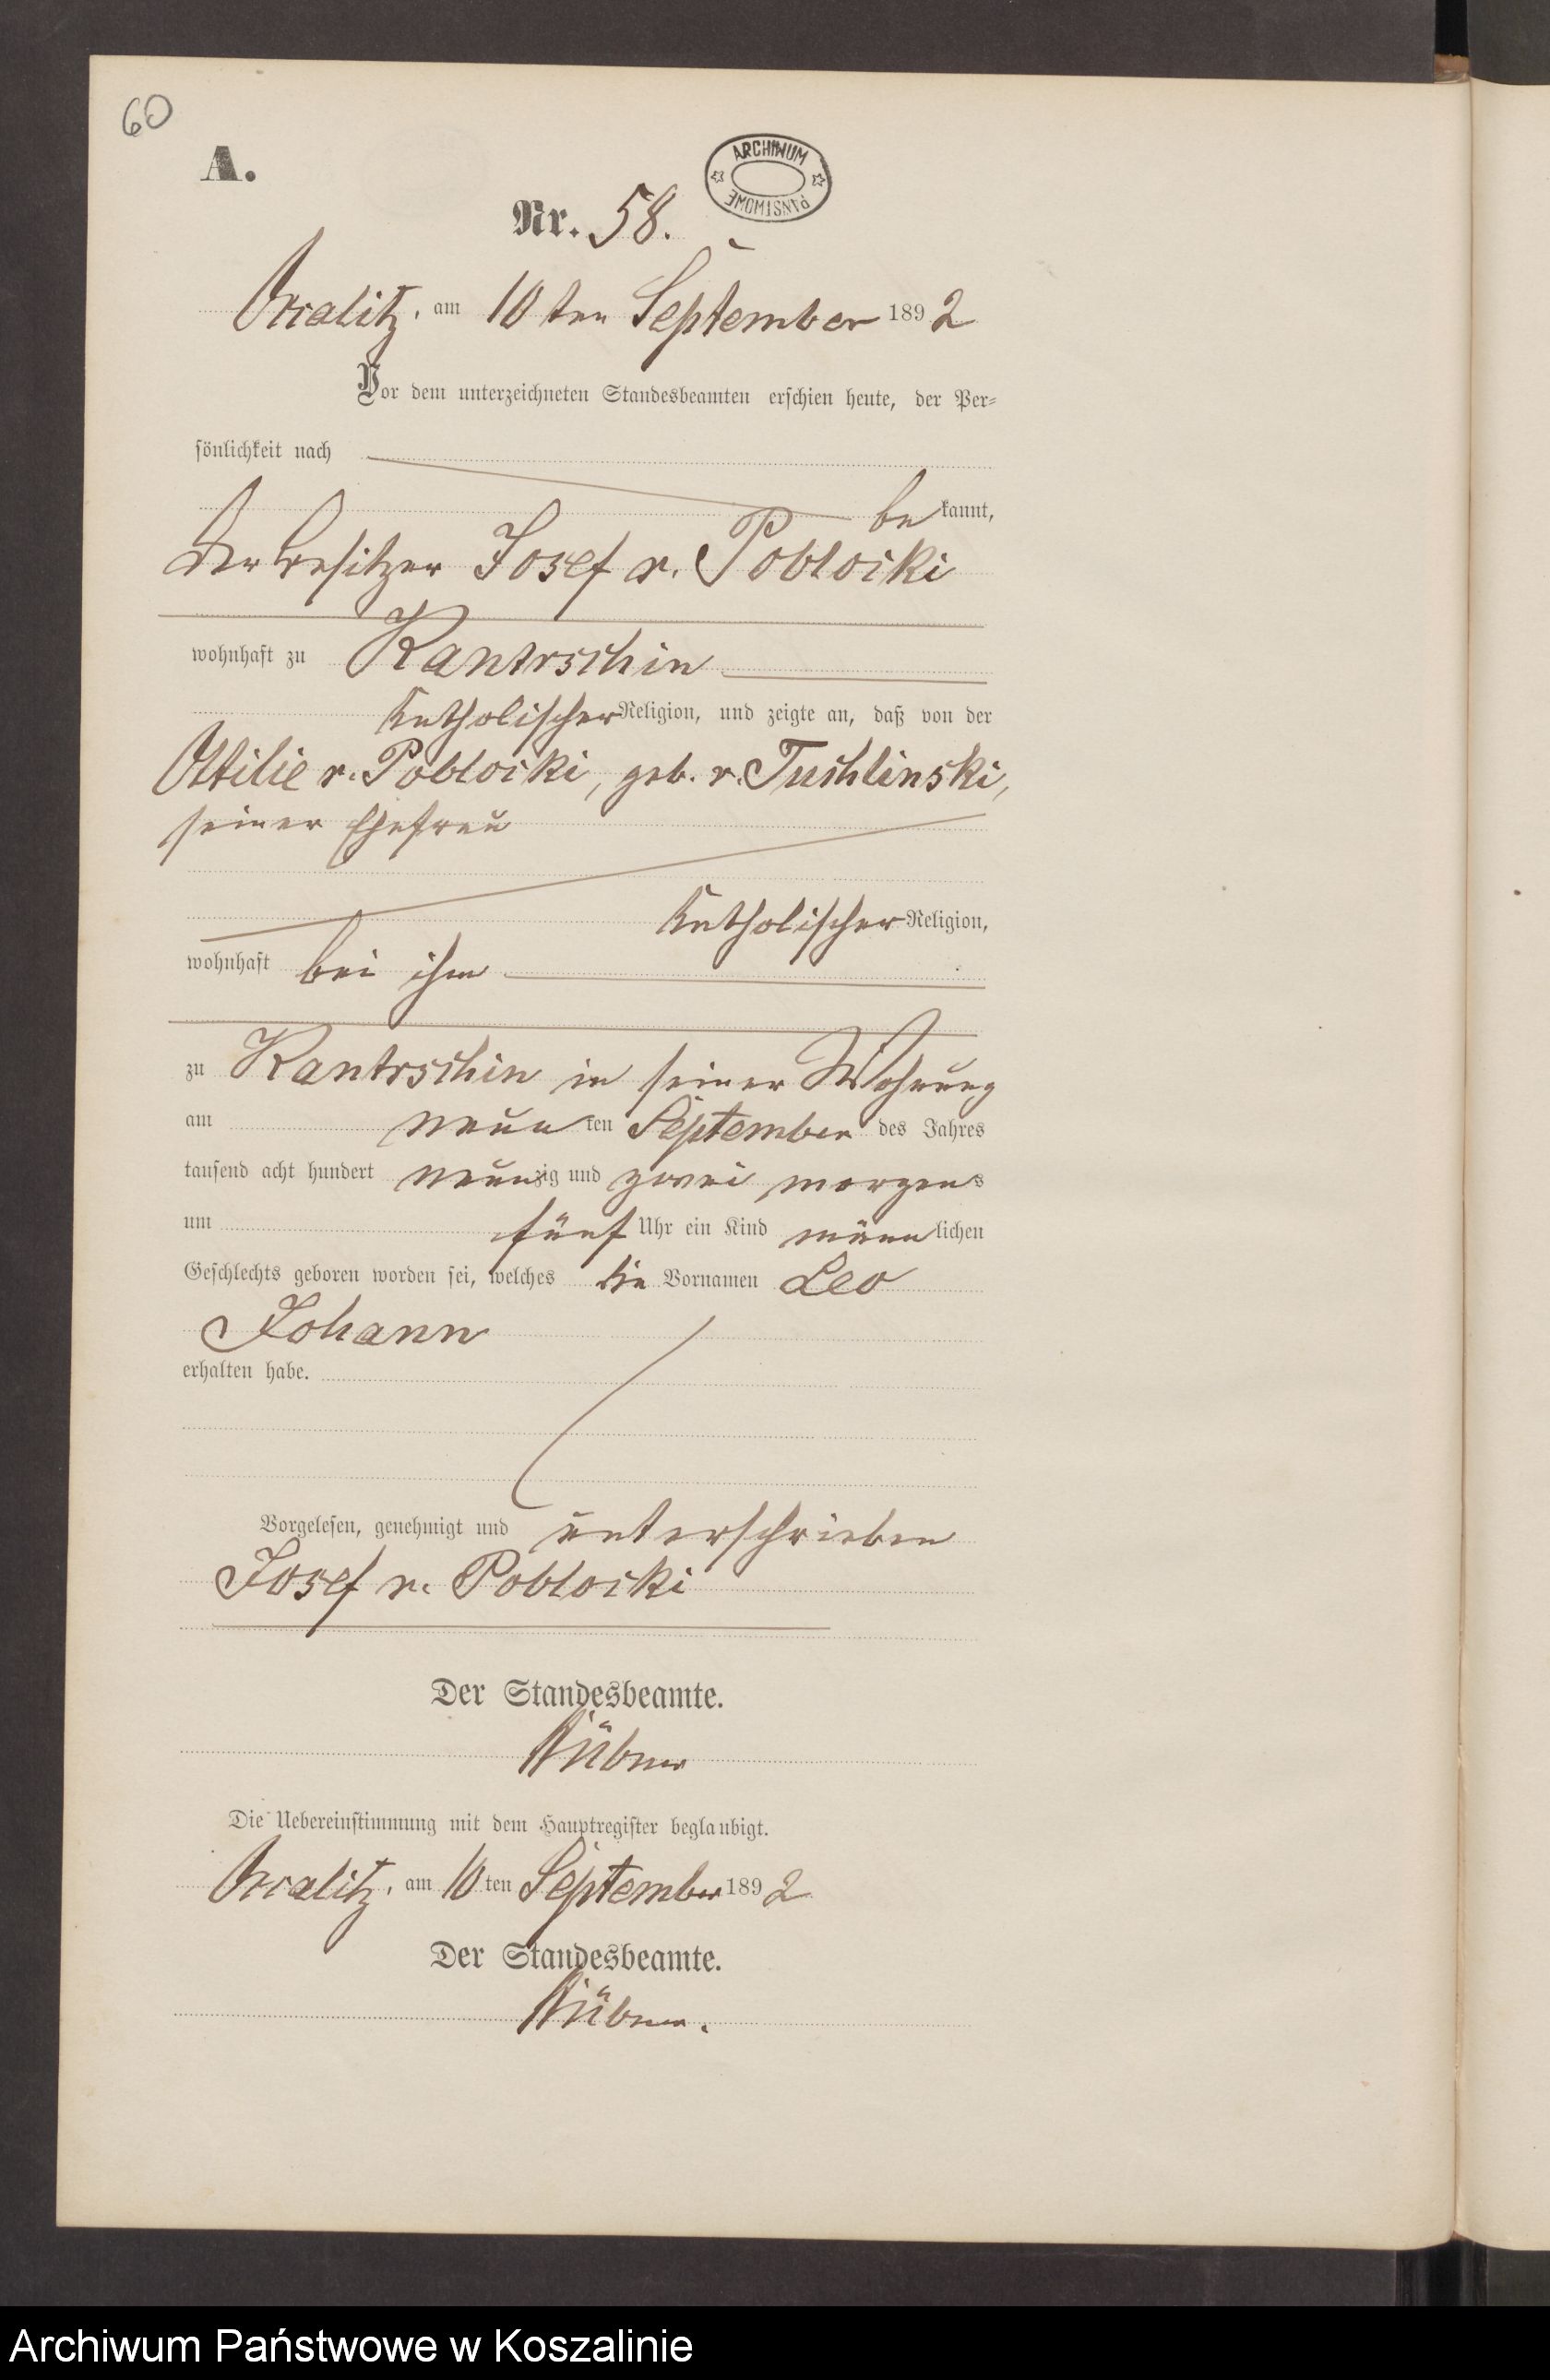 60
A.
ARCHIWUM PAŃSTWOWE
Nr. 58.
am 10ten September 1892
Vor dem unterzeichneten Standesbeamten erschien heute, der Per=
sönlichkeit nach
bekannt,
der Besitzer Josef v. Poblocki
wohnhaft zu Kantrschin
katholischer Religion, und zeigte an, daß von der
Ottilie v. Poblocki, geb. v. Tuchlinski,
seiner Ehefrau
katholischer Religion,
wohnhaft bei ihm
zu Kantrschin in seiner Wohnung
am neunten September des Jahres
tausend acht hundert neunzig und zwei morgens
um fünf Uhr ein Kind männlichen
Geschlechts geboren worden sei, welches die Vornamen Leo
Johann
erhalten habe.
Vorgelesen, genehmigt und unterschrieben
Josef v. Poblocki
Der Standesbeamte.
Die Uebereinstimmung mit dem Hauptregister beglaubigt.
am 10ten September 1892
Der Standesbeamte.
Archiwum Państwowe w Koszalinie